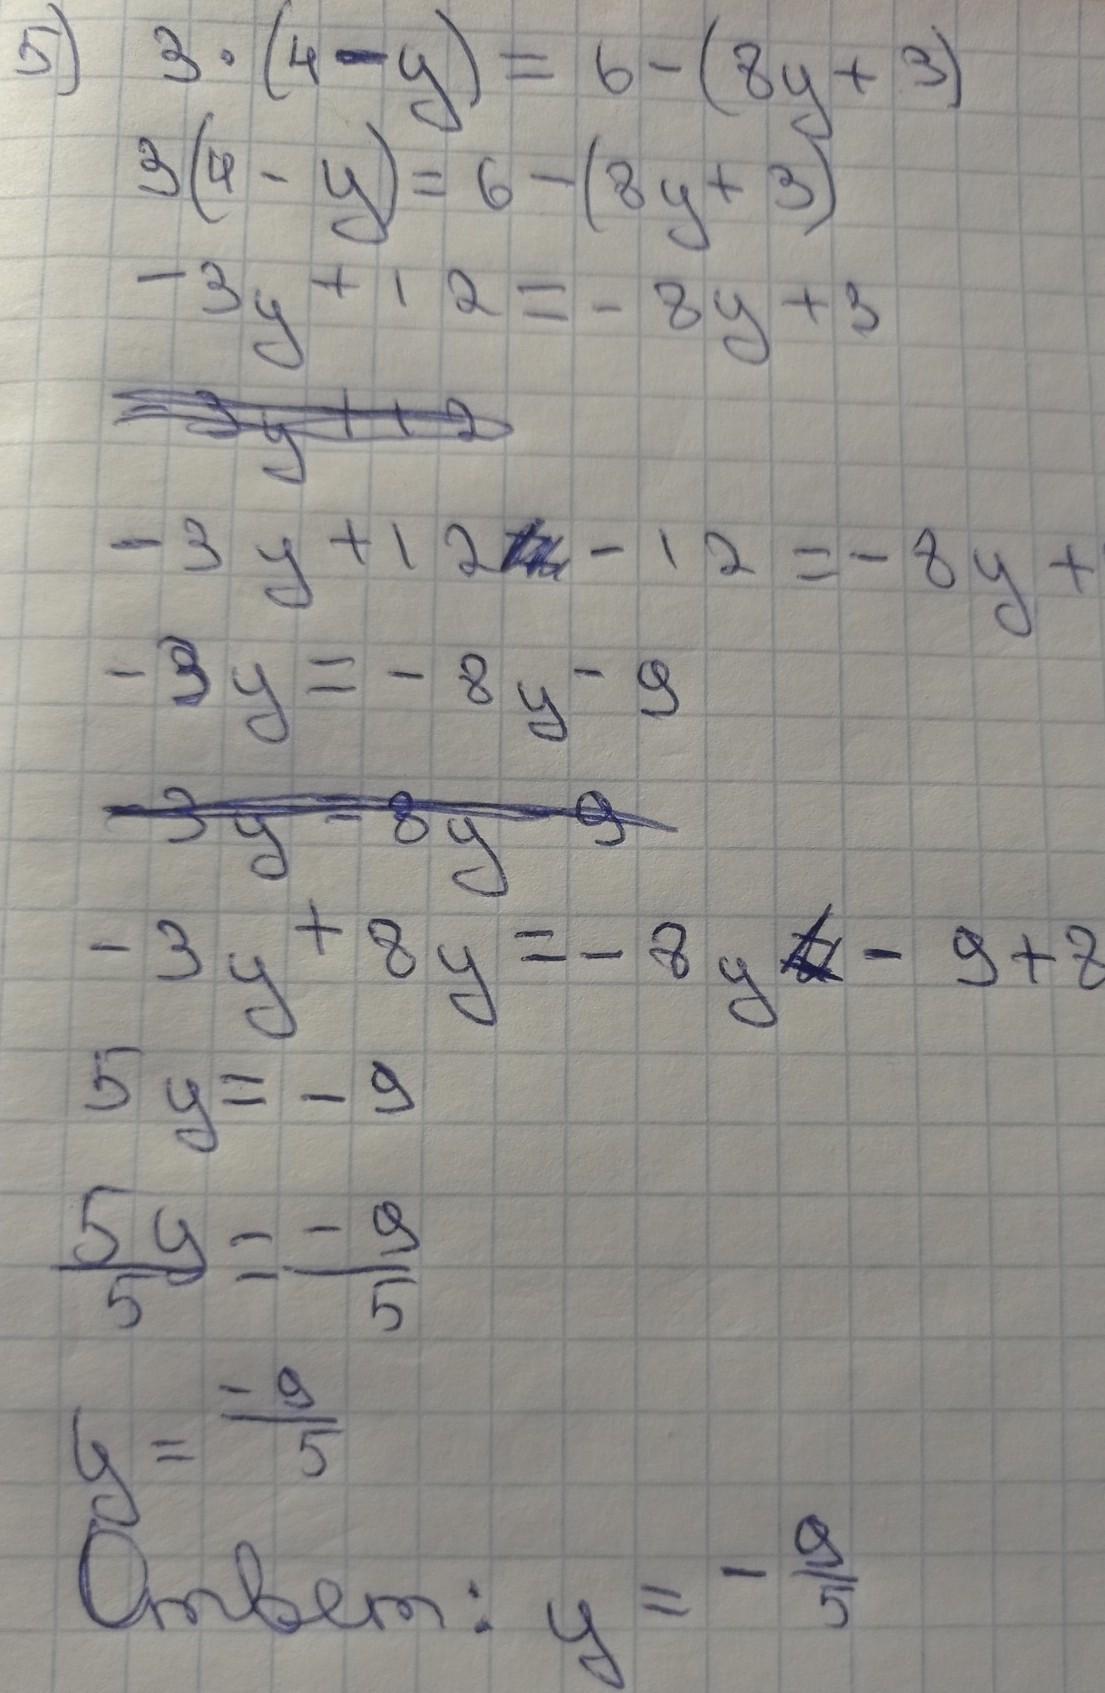 5) 3·(4-y)=6-(8y+3)
3(4-y)=6-(8y+3)
-3y+12=-8y+3
-3y+12
-3y+12-12=-8y+
-3y=-8y-9
-3y-8y-9
-3y+8y=-8y-9+8
5y=-9
5y/5=-9/5
y=-9/5
Ответ: y=-9/5